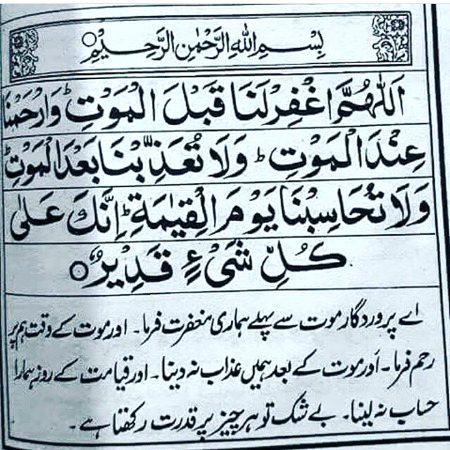 بِسْمِ اللهِ الرَّحْمٰنِ الرَّحِيْمِ
اَللّٰهُمَّ اغْفِرْ لَنَا قَبْلَ الْمَوْتِ ؕ وَارْحَمْنَا
عِنْدَ الْمَوْتِ ؕ وَلَا تُعَذِّبْنَا بَعْدَ الْمَوْتِ ؕ
وَلَا تُحَاسِبْنَا يَوْمَ الْقِيٰمَةِ ؕ اِنَّكَ عَلٰى
كُلِّ شَيْءٍ قَدِيْرٌ
اے پروردگار موت سے پہلے ہماری مغفرت فرما۔ اور موت کے وقت ہم پر
رحم فرما۔ اور موت کے بعد ہمیں عذاب نہ دینا۔ اور قیامت کے روز ہمارا
حساب نہ لینا۔ بے شک تو ہر چیز پر قدرت رکھتا ہے۔